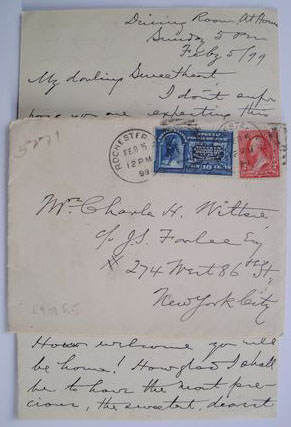 Dining Room, At Home
Sunday 5 PM
Feby 5/99
My darling Sweetheart
I don't
pose you are expecting this
5271
ROCHESTER
FEB 5
12 PM
99
Mrs Charles H. Wiltsie
c/o J.S. Esq
274 West 86th St
New York City
How welcome you will
be home! How glad I shall
be to have the most pre-
cious, the sweetest, dearest